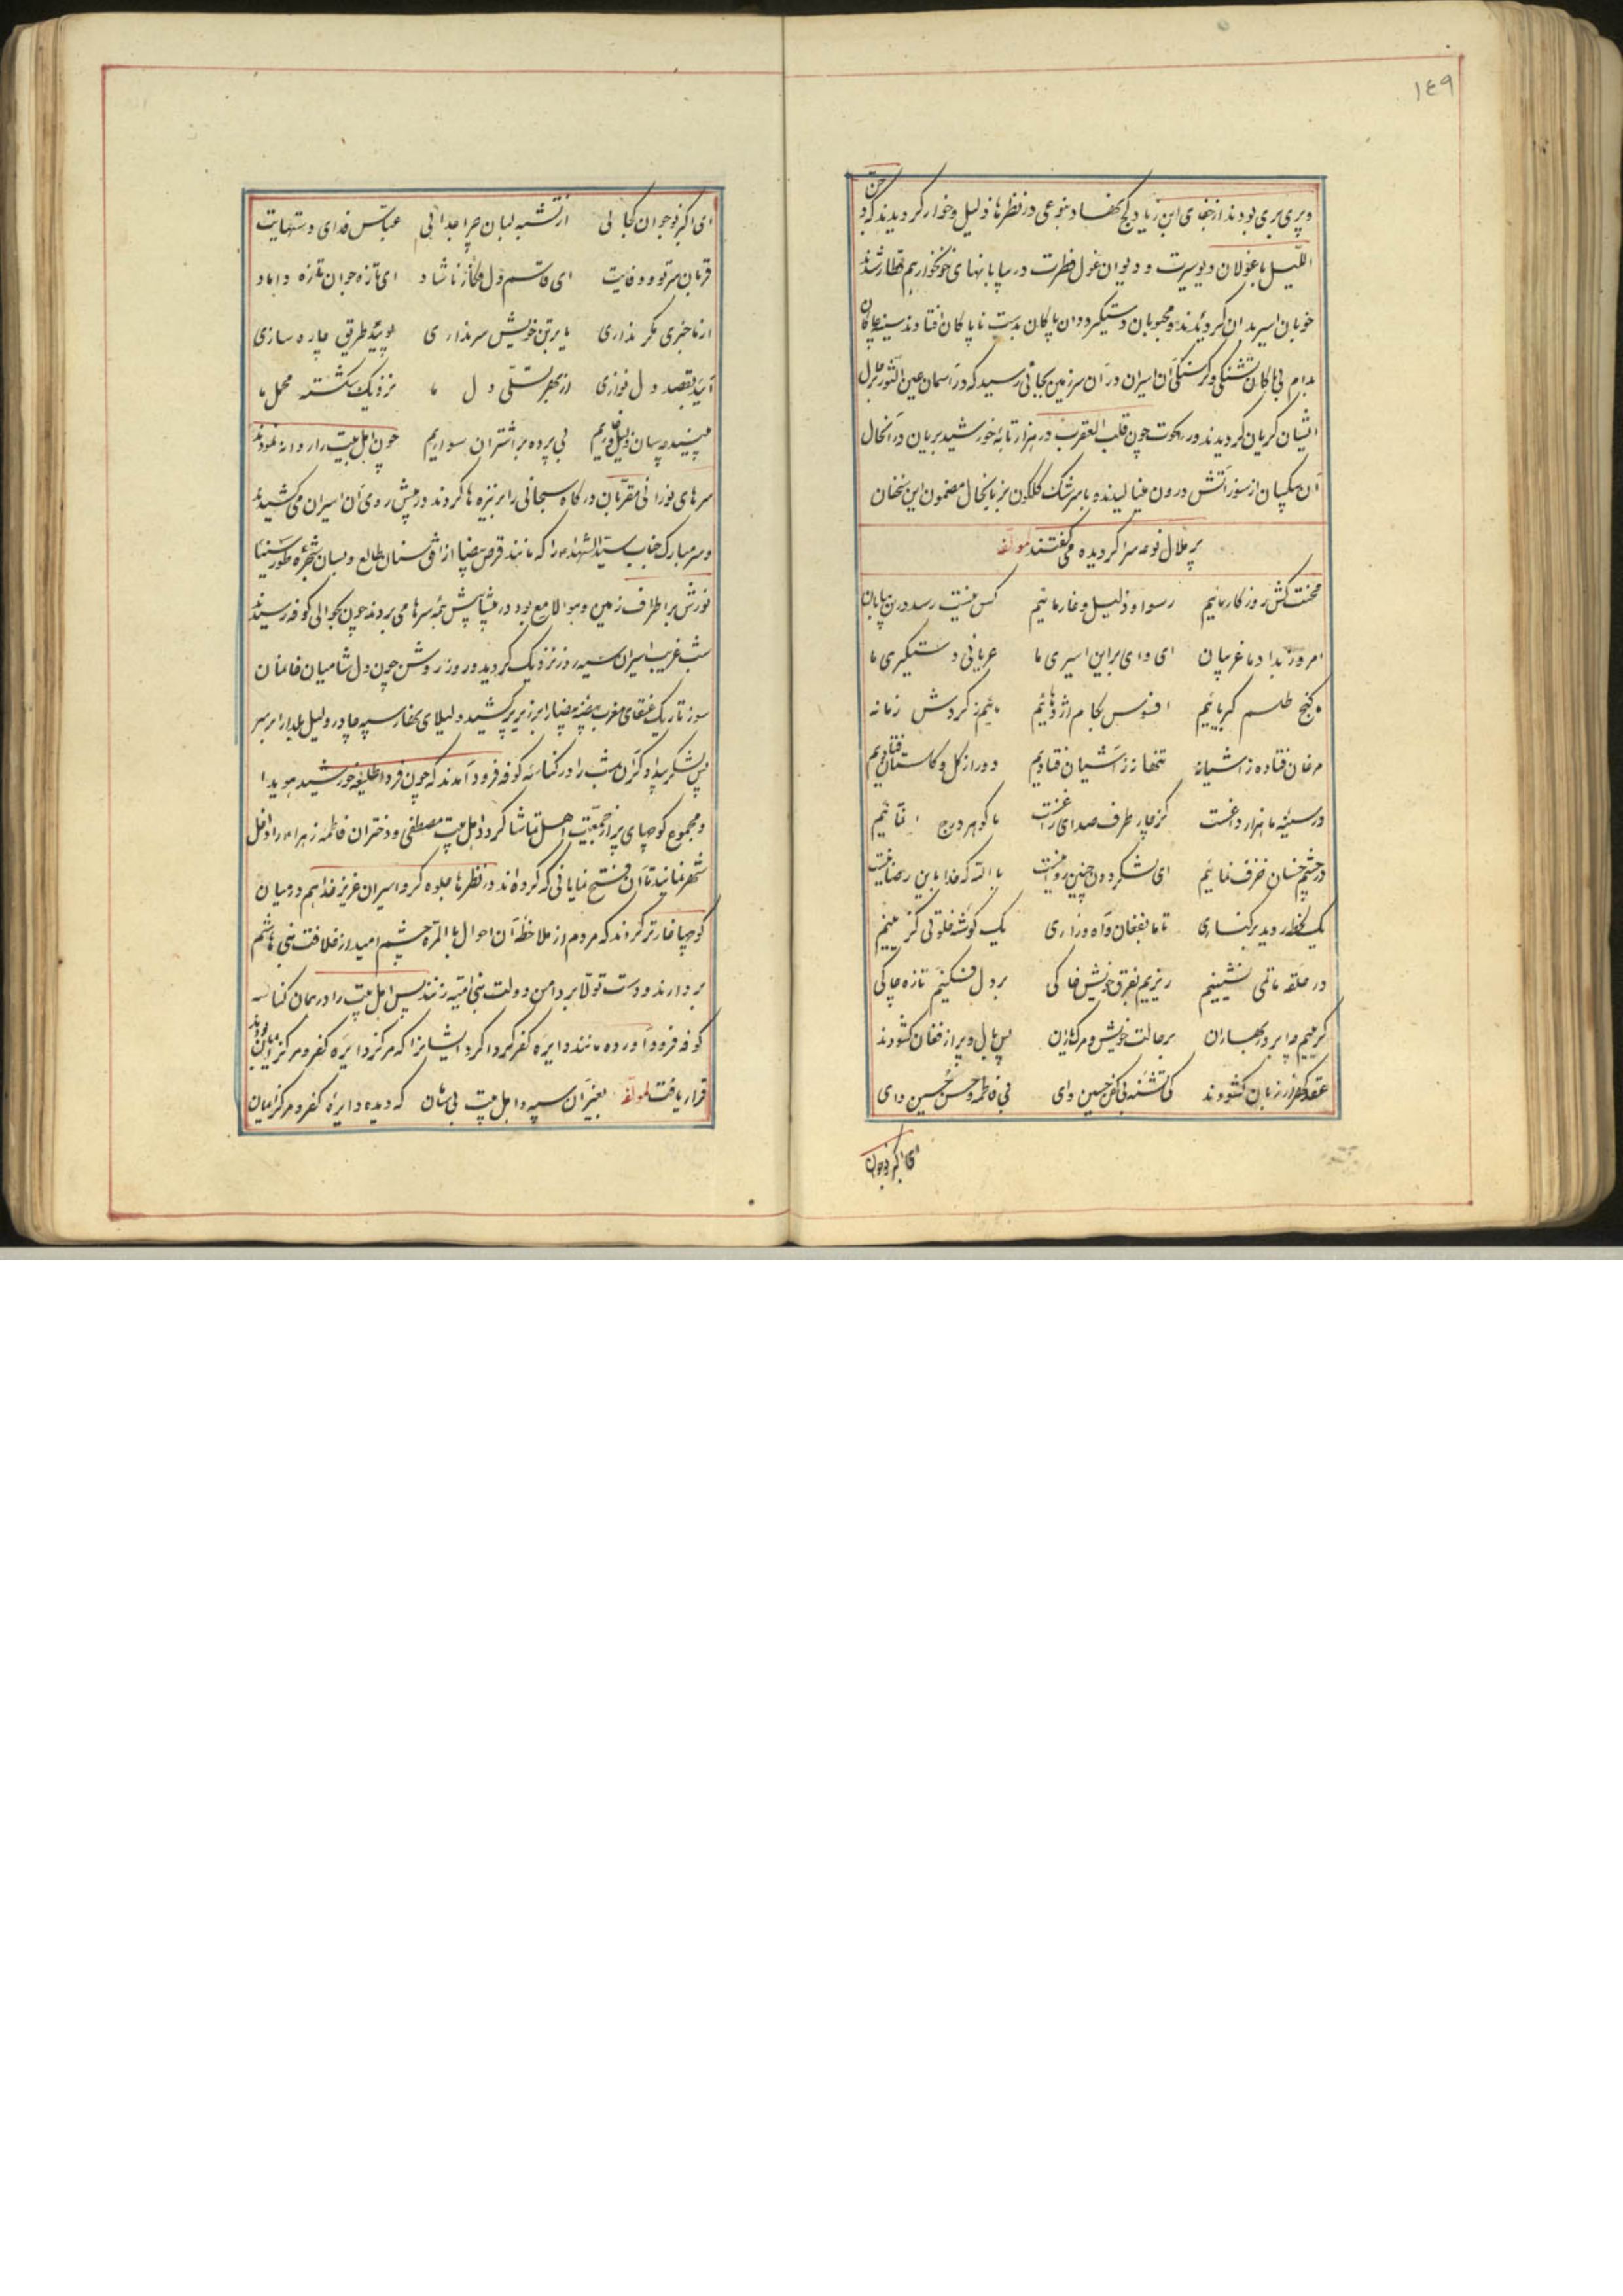 ١٤٩
و پری بری بودند از جفای ابن زیاد کج نهاد بنوعی در نظرها ذلیل و خوار گردیدند که
اللیل با غولان دیو سیرت و دیوان غول فطرت در بیابانهای خونخوار هم قطار شدند
خوبان اسیر بدان گردیدند و محبوبان دستگیر ددان پاکان بدست ناپاکان افتادند
تشنگی و گرسنگی آن اسیران در آن سرزمین بجائی رسید که در آسمان عین الثور
ایشان گریان گردید و در حوت چون قلب العقرب در هزار تابه خورشید بریان در آنحال
آن بیکسان از سوز آتش درون مینالیدند و با سرشک گلگون بزبانحال مضمون این سخنان
پر ملال نوحه سرا گردیده می گفتند لمؤلفه
محنت کش روزگار مائیم رسوا و ذلیل و خار مائیم کس نیست رسد درین بیابان
امروز بداد ما غریبان ای وای براین اسیری ما عریانی و دستگیری ما
ما گنج طلسم کبریائیم افسوس بکام اژدهائیم مائیم ز گردش زمانه
مرغان فتاده ز آشیانه تنها نه ز آشیان فتادیم دور از گل و گلستان فتادیم
در سینه ما هزار داغست کز چار طرف صدای زاغست ما گوهر درج
در چشم خسان خزف نمائیم ای لشگر دون چنین روا نیست بالله که خدا باین رضا نیست
یک لحظه روید برکناری تا ما بفغان و آه و زاری یک گوشه خلوتی گزینیم
در حلقه ماتمی نشینیم ریزیم بفرق خویش خاکی بر دل فکنیم تازه چاکی
گرییم چو ابر در بهاران بر حالت خویش و مرگ یاران پس بال و پر از فغان گشودند
عقد گهر از زبان گشودند کای تشنه بی کفن حسین وای بی فاطمه و حسن حسین وای
ای اکبر نوجوان
ای اکبر نوجوان کجائی از تشنه لبان چرا جدائی عباس فدای دستهایت
قربان سر تو و وفایت ای قاسم دل فکار ناشاد ای تازه جوان تازه داماد
از ما خبری مگر نداری یا بر تن خویش سر نداری پوئید طریق چاره سازی
آئید بقصد دل نوازی از بهر تسلی دل ما نزدیک شکسته محمل ما
بینید چه سان ذلیل و زاریم بی پرده بر اشتران سواریم چون اهل بیت را روانه نمودند
سرهای نورانی مقربان درگاه سبحانی را بر نیزه ها کردند در پیش روی آن اسیران می کشیدند
و سر مبارک جناب سید الشهدا را که مانند قرص بیضا از افق سنان طالع و بسان شجره طور سینا
نورش بر اطراف زمین و هوا لامع بود در پیشاپیش همه سرها می بردند چون بحوالی کوفه رسیدند
شب غریب اسیران سیه روز نزدیک گردید و روز روشن چون دل شامیان خانمان
سوز تاریک عنقای مغرب بیضه بیضا را بزیر پر کشید و لیلای سیه چادر ولیل یلدا را بر سر
پس لشگر بیدادگر آن شب را در کناسه کوفه فرود آمدند که چون فردا طلیعه خورشید هویدا
و مجموع کوچهای پر از جمعیت اهل تماشا گردد اهل بیت مصطفی و دختران فاطمه زهرا را داخل
شهر نمایند تا آن فتح نمایانی که کرده اند در نظرها جلوه گر و اسیران عزیز خدا هم در میان
کوچها خارتر گردند که مردم از ملاحظه آن احوال بالمره چشم امید از خلافت بنی هاشم
بردارند و دست تولا بر دامن دولت بنی امیه زنند پس اهل بیت را در همان کناسه
کوفه فرود آورده مانند دایره کفر گرداگرد ایشان را که مرکز دایره کفر و مرکز ایمان
قرار یافت لمؤلفه بغیر آن سپه و اهل بیت بی سامان که دیده دایره کفر و مرکز ایمان